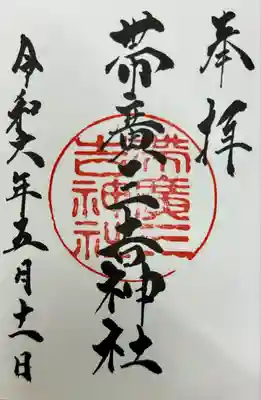 奉拝
帯廣三吉神社
帯廣三吉神社
令和六年五月十一日